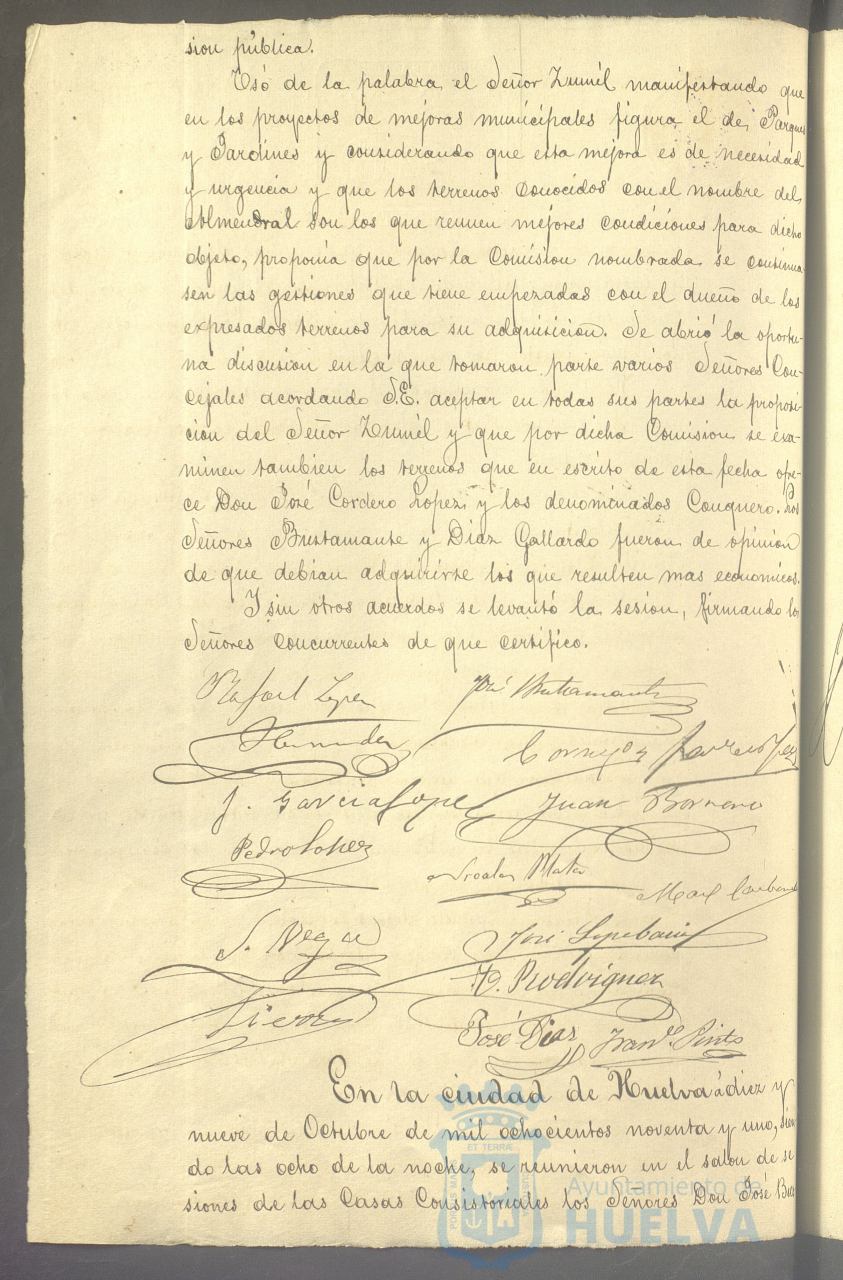 sion pública.
Usó de la palabra el Señor Zumél manifestando que
en los proyectos de mejoras municipales figura el de Parques
y Jardines y considerando que esta mejora es de necesidad
y urgencia y que los terrenos conocidos con el nombre del
Almendral son los que reunen mejores condiciones para dicho
objeto, proponia que por la Comision nombrada se continua-
sen las gestiones que tiene empezadas con el dueño de los
expresados terrenos para su adquisicion. Se abrió la oportu-
na discusion en la que tomaron parte varios Señores Con-
cejales acordando S.E. aceptar en todas sus partes la proposi-
cion del Señor Zumél y que por dicha Comision se exa-
minen tambien los terrenos que en escrito de esta fecha ofre-
ce Don José Cordero Lopez y los denominados Conquero. Los
Señores Bustamante y Diaz Gallardo fueron de opinion
de que debian adquirirse los que resulten mas economicos.
Y sin otros acuerdos se levantó la sesion, firmando los
Señores concurrentes de que certifico.
Rafael Lopez José Bustamante
Hernandez
J. Garcia Lopez Juan Borrero
Pedro Lopez Nicolas Mata
S. Vega José
H. Rodriguez
José Dias Franco. Pinto
En la ciudad de Huelva á diez y
nueve de Octubre de mil ochocientos noventa y uno, sien
do las ocho de la noche, se reunieron en el salon de se
siones de las Casas Consistoriales los Señores Don José Bus
Ayuntamiento de
HUELVA